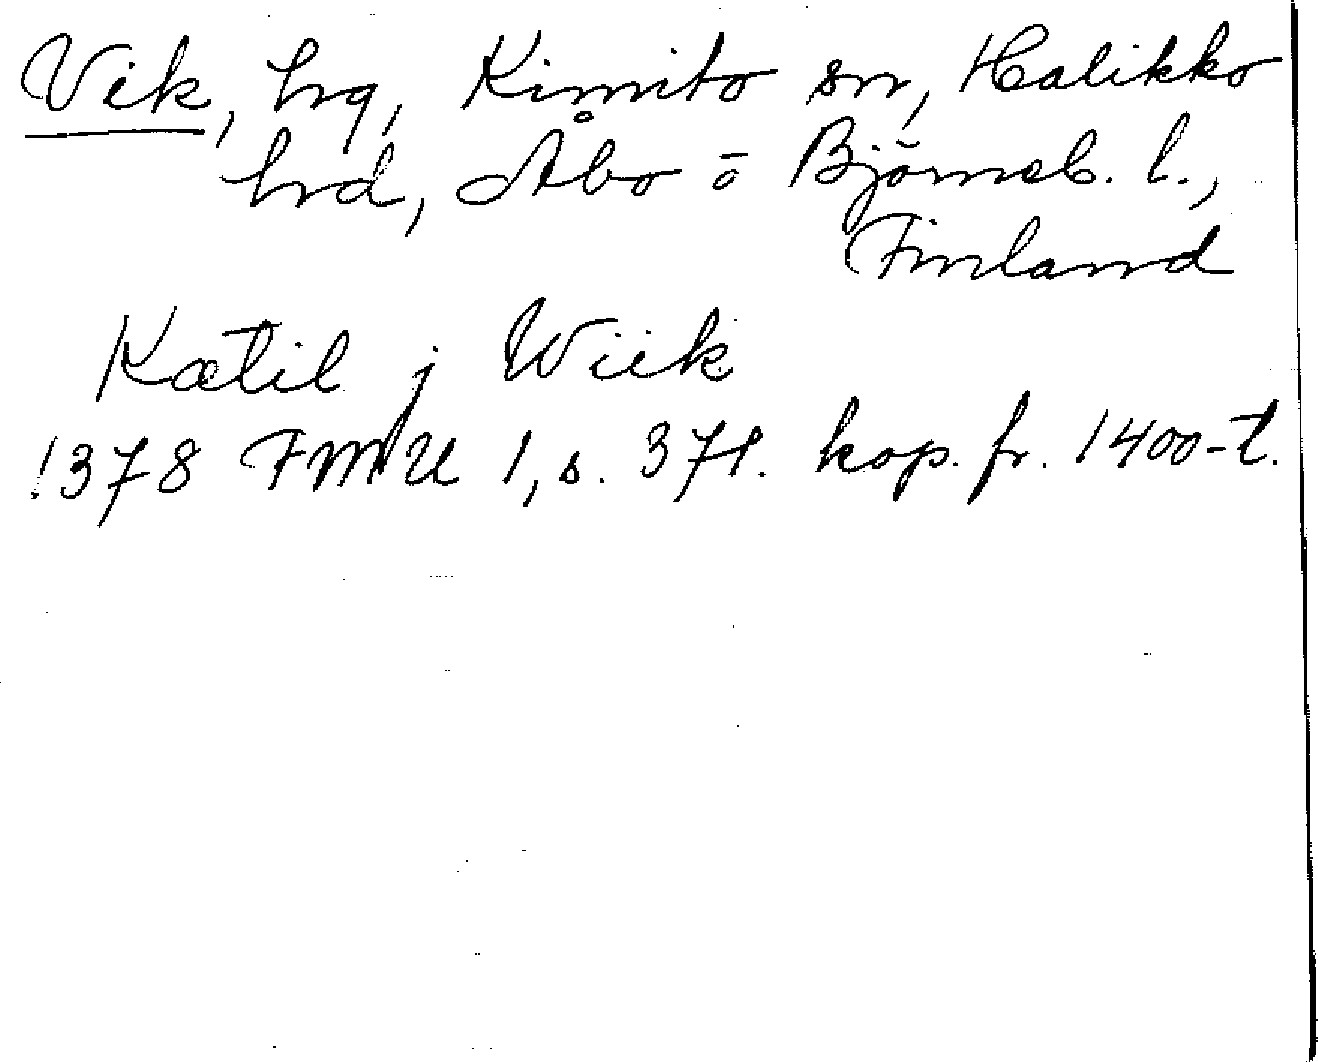 Vik, hg, Kimito sn, Halikko
hrd, Åbo o Björneb. l.,
Finland
Kætil j Wiik
1378 FMU 1, s. 371. kop. fr. 1400-t.